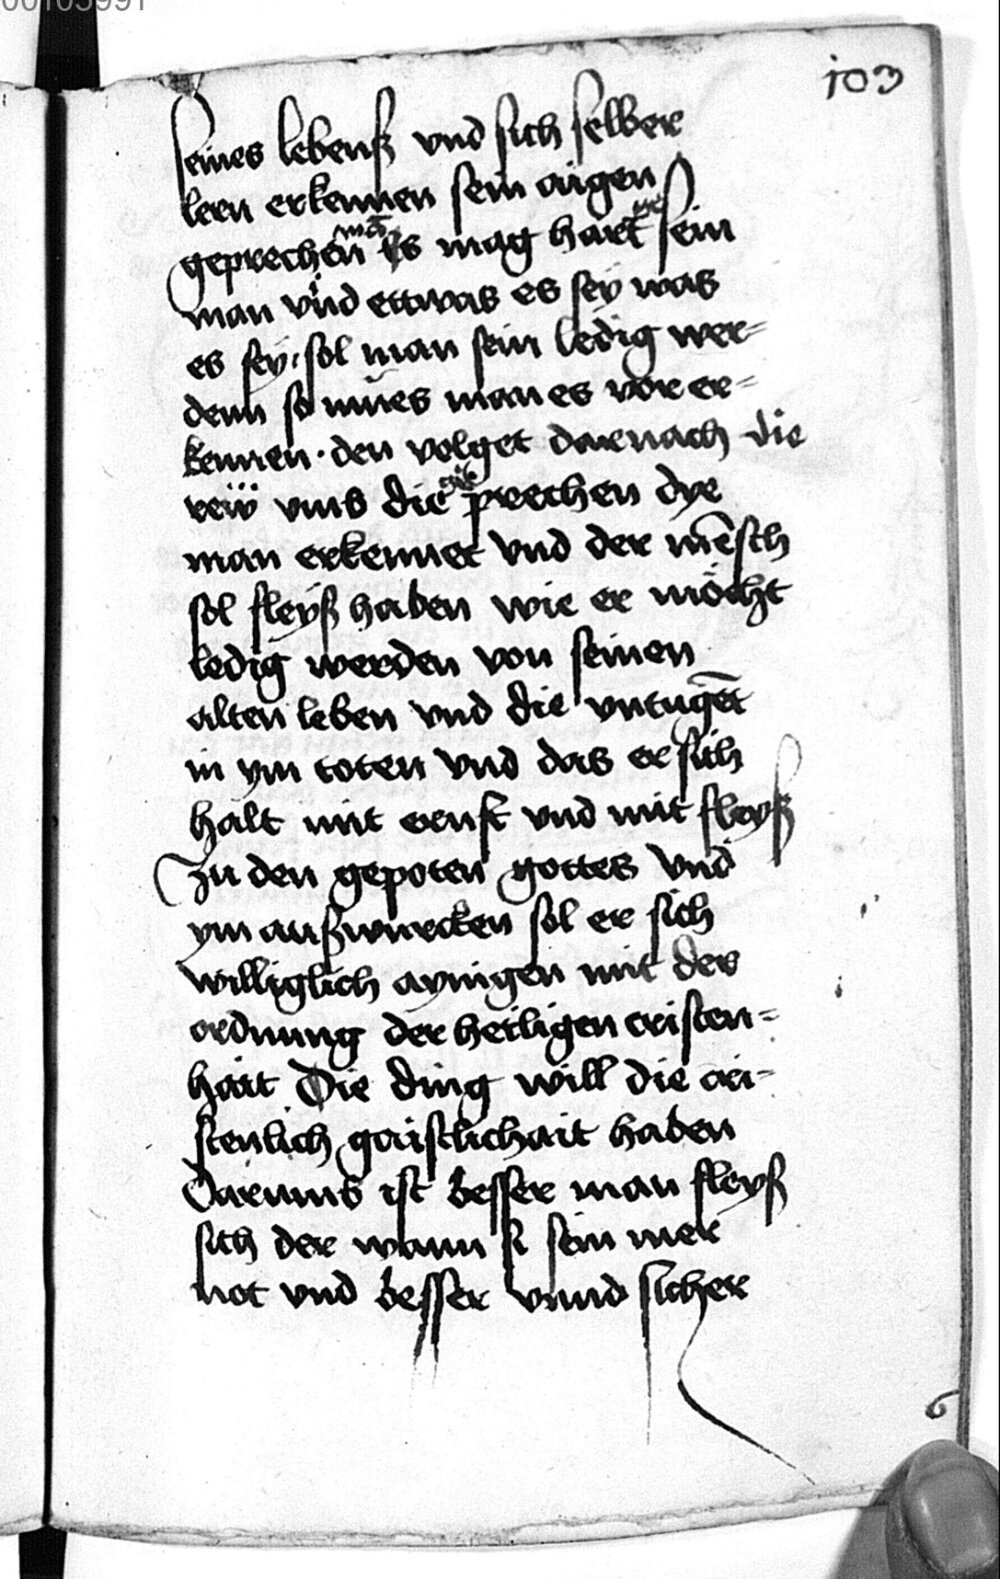 00103991
103
seines lebenß vnd sich selber
lern erkennen sein aigen
geprechen Es mag hart sein
man vnd ettwas es sey was
es sey sol man sein ledig wer=
denn so mües man es vor er=
kennen · den volget darnach die
reẅ vms die prechen dye
man erkennet vnd der mēsch
sol fleyß haben wie er möcht
ledig werden von seinen
alten leben vnd die vntugēt
in ym toten vnd das er sich
halt mit ernst vnd mit fleyß
Zu den gepoten gottes vnd
ym außwurcken sol er sich
williglich aynigen mit der
ordnung der heiligen cristen=
hait Die ding will die cri=
stenlich gaistlichait haben
Darumb ist besser man fleyß
sich der wann si sein mer
not vnd besser vnnd sicher
6